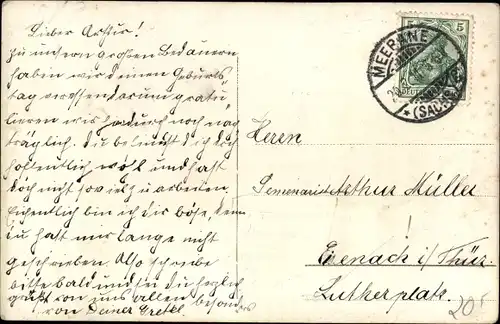 Lieber Arthur!
Zu unserm großen Bedauern
haben wir deinen Geburts
tag vergessen darum gratu
lieren wir hadurch noch nach
träglich. Du befindest dich doch
hoffentlich wohl und hast
doch nicht so viel zu arbeiten.
Eigentlich bin ich dir böse, denn
du hast uns lange nicht
geschrieben. Also schreibe
bitte bald und sei du herzlich
gegrüßt von uns allen besonders
von Deiner Gretel.
5 5
MEERANE
(SACHSEN)
Herrn
Seminarist Arthur Müller
Eisenach i/Thür.
Lutherplatz.
20